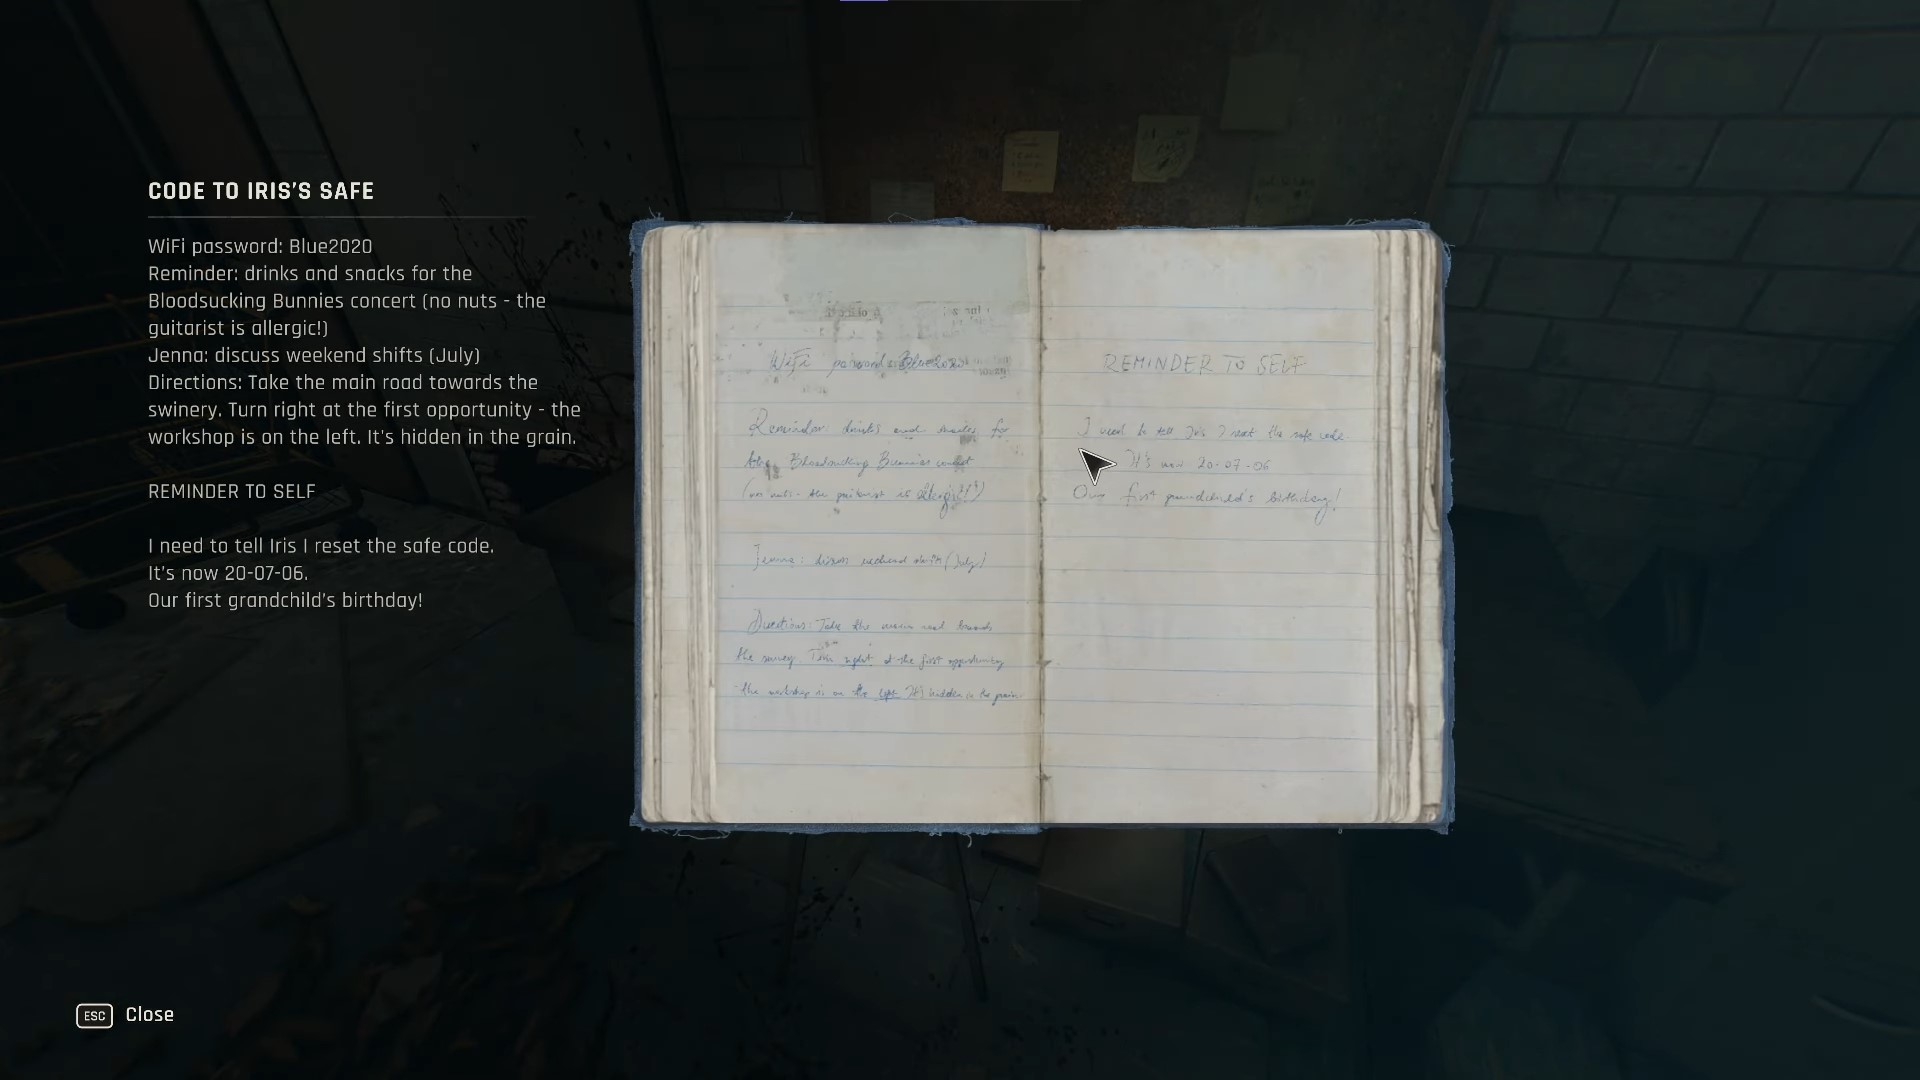 CODE TO IRIS'S SAFE
WiFi password: Blue2020
Reminder: drinks and snacks for the
Bloodsucking Bunnies concert (no nuts - the
guitarist is allergic!)
Jenna: discuss weekend shifts (July)
Directions: Take the main road towards the
swinery. Turn right at the first opportunity - the
workshop is on the left. It's hidden in the grain.
REMINDER TO SELF
I need to tell Iris I reset the safe code.
It's now 20-07-06.
Our first grandchild's birthday!
WiFi password: Blue2020
Reminder: drinks and snacks for
the Bloodsucking Bunnies concert
(no nuts - the guitarist is allergic!)
Jenna: discuss weekend shifts (July)
Directions: Take the main road towards
the swinery. Turn right at the first opportunity
the workshop is on the left. It's hidden in the grain.
REMINDER TO SELF
I need to tell Iris I reset the safe code.
It's now 20-07-06
Our first grandchild's birthday!
ESC Close